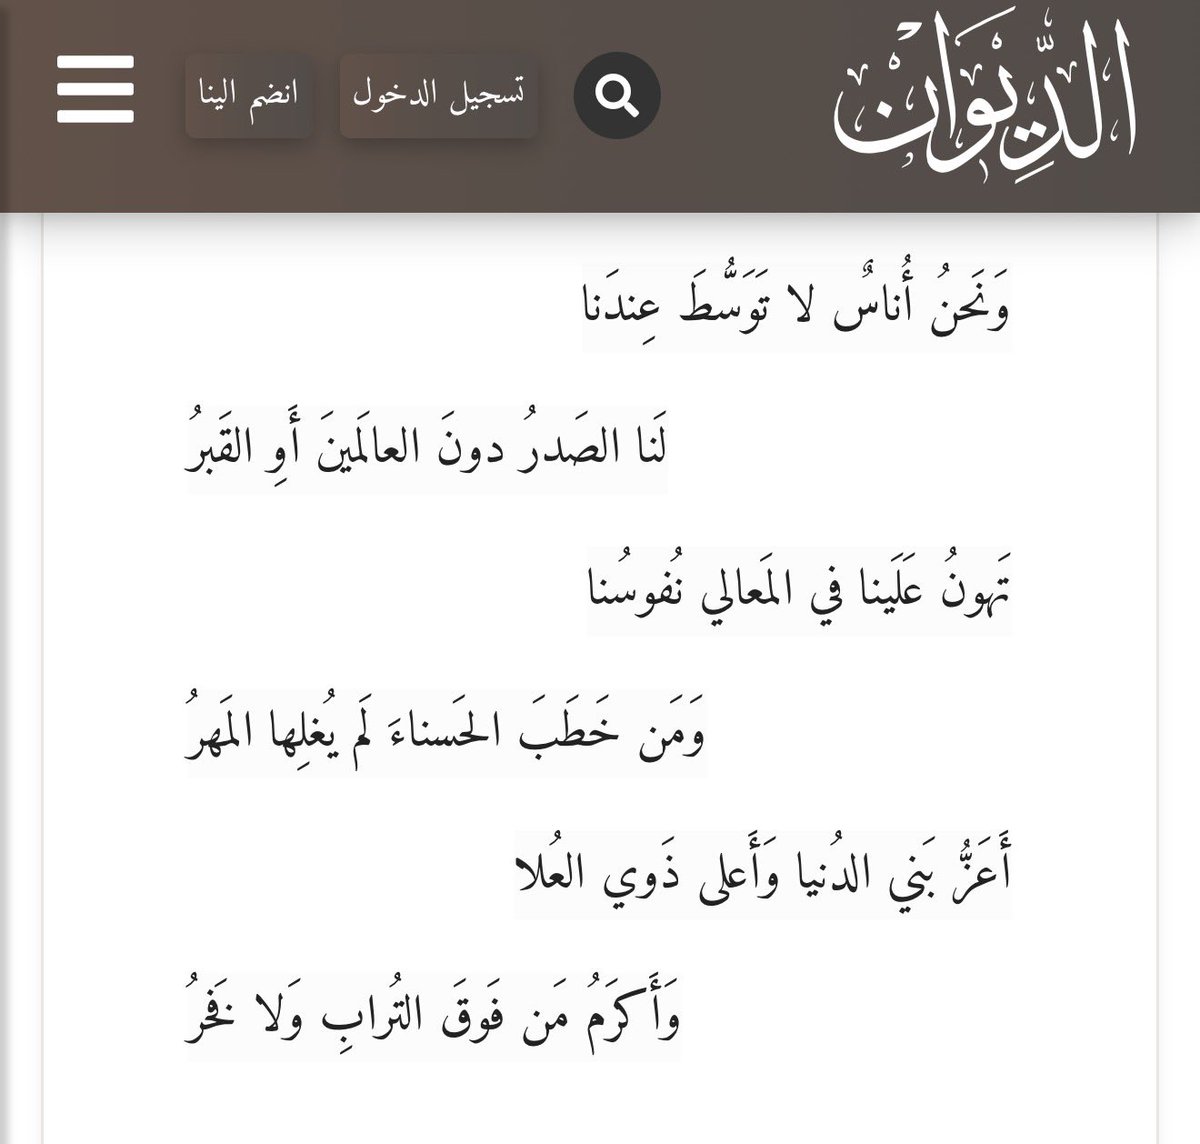 الدِّيوَان
تسجيل الدخول
انضم الينا
وَنَحنُ أُناسٌ لا تَوَسُّطَ عِندَنا
لَنا الصَدرُ دونَ العالَمينَ أَوِ القَبرُ
تَهونُ عَلَينا في المَعالي نُفوسُنا
وَمَن خَطَبَ الحَسناءَ لَم يُغلِها المَهرُ
أَعَزُّ بَني الدُنيا وَأَعلى ذَوي العُلا
وَأَكرَمُ مَن فَوقَ التُرابِ وَلا فَخرُ